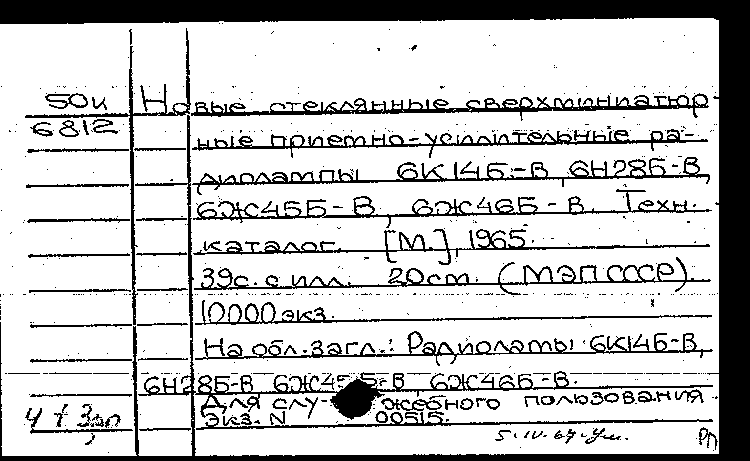 50и Новые стеклянные сверхминиатюр-
6812
ные приемно-усилительные ра-
диолампы 6К14Б-В, 6Н28Б-В,
6Ж45Б-В, 6Ж46Б-В. Техн.
каталог. [М.], 1965.
39с. с илл. 20cm. (МЭП СССР).
10000 экз.
На обл. загл.: Радиоламы 6К14Б-В,
6Н28Б-В 6Ж45Б-В, 6Ж46Б-В.
Для служебного пользования.
4 + 3ап Экз. N 00515.
5.IV.67. РП